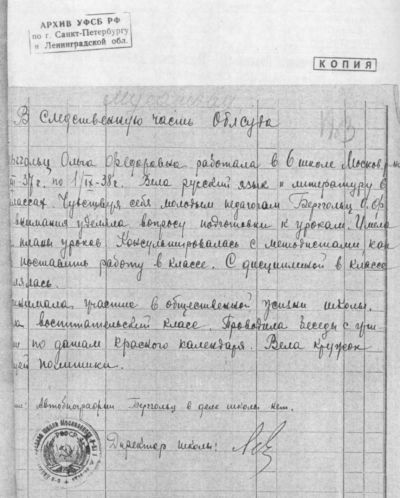 АРХИВ УФСБ РФ
по г. Санкт-Петербургу
и Ленинградской обл.
КОПИЯ
В Следственную часть Облсуда
Ольга Федоровна работала в 6 школе Москов р-на
37г. по 1/IX-38г. Вела русский язык и литературу в
классах Чувствуя себя молодым педагогом Берггольц О.Ф.
внимания уделяла вопросу подготовки к урокам. Имела
планы уроков. Консультировалась с методистами как
поставить работу в классе. С дисциплиной в классе
лялась.
нимала участие в общественной жизни школы.
ла воспитательский класс. Проводила беседы с
по датам Красного календаря. Вела кружок
щей политики.
Автобиографии Берггольц в деле школы нет.
Директор школы: